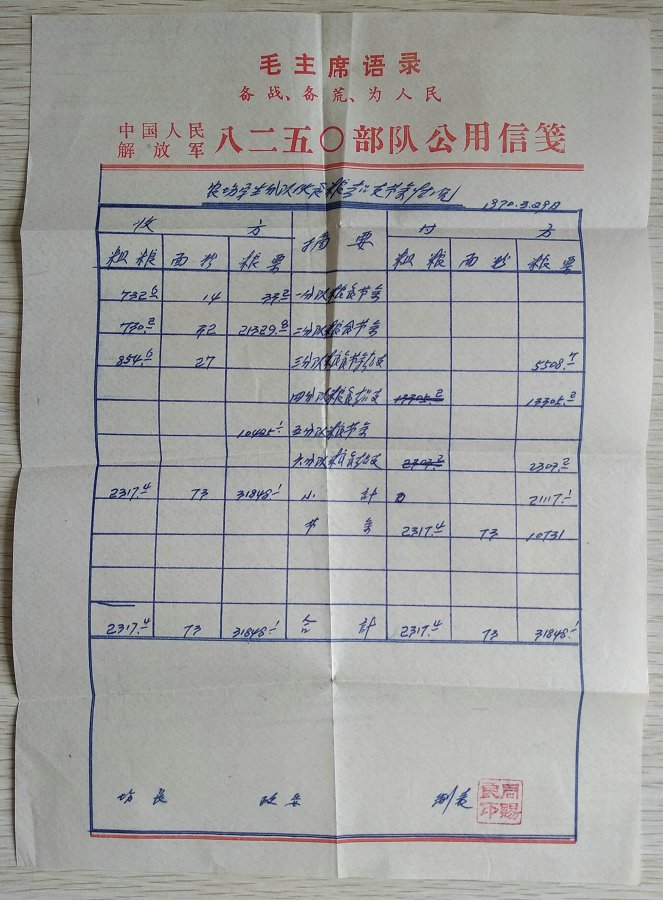 毛主席语录
备战、备荒、为人民
中国人民
解放军 八二五〇部队公用信笺
农场学生分队伙食粮 支节余情况 1970.3.29日
收 方 摘 要 付 方
粗粮 面粉 粮票 粗粮 面粉 粮票
732.6 14 33.2 一分队粮食节余
730.2 32 21329.8 二分队粮食节余
854.6 27 三分队粮食 支 5508.7
四分队粮食 支 13305.2 13305.2
10485.1 五分队粮节余
六分队粮食 支 2303.2 2303.2
2317.4 73 31848.1 小 计 0 21117.1
节 余 2317.4 73 10731
2317.4 73 31848.1 合 计 2317.4 73 31848.1
场长 政委 制表 周赐良印